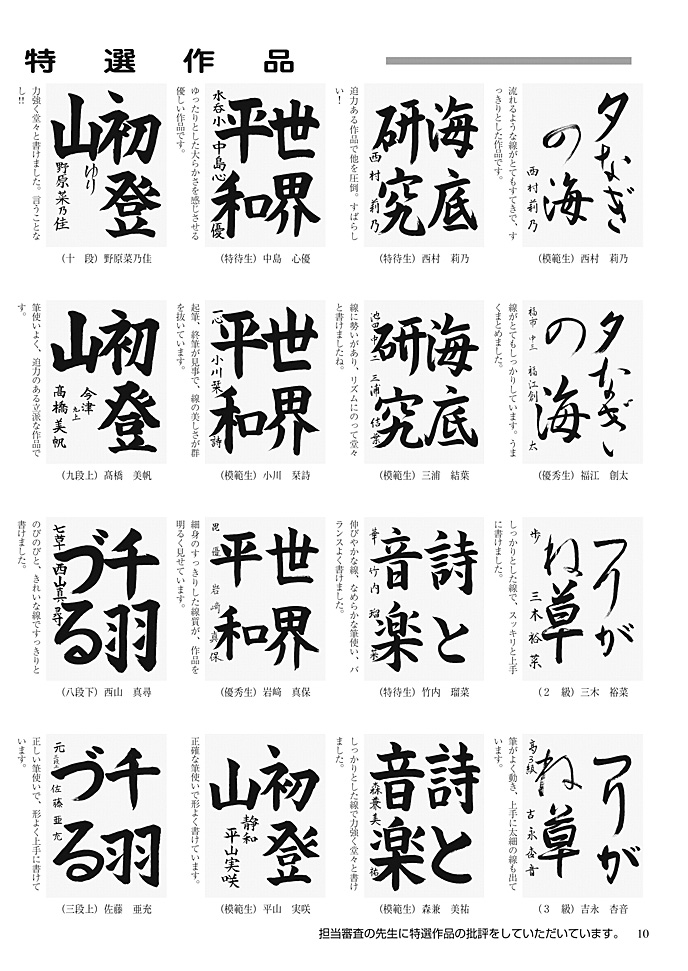 特選作品
夕なぎ
の海
西村莉乃
流れるような線がとてもすてきで、す
っきりとした作品です。
(模範生) 西村 莉乃
海底
研究
西村莉乃
迫力ある作品で他を圧倒。すばらし
い！
(特待生) 西村 莉乃
世界
平和
水呑小 中島心優
ゆったりとした大らかさを感じさせる
優しい作品です。
(特待生) 中島 心優
初登
山
ゆり
野原菜乃佳
力強く堂々と書けました。言うことな
し!!
(十 段) 野原菜乃佳
夕なぎ
の海
福市 中三 福江創太
線がとてもしっかりしています。うま
くまとめました。
(優秀生) 福江 創太
海底
研究
池田中二 三浦結葉
線に勢いがあり、リズムにのって堂々
と書けましたね。
(模範生) 三浦 結葉
世界
平和
一心 小川栞詩
起筆、終筆が見事で、線の美しさが群
を抜いています。
(模範生) 小川 栞詩
初登
山
今津
九上
髙橋美帆
筆使いよく、迫力のある立派な作品で
す。
(九段上) 髙橋 美帆
つりが
ね草
歩 三木裕菜
しっかりとした線で、スッキリと上手
に書けました。
(２ 級) 三木 裕菜
詩と
音楽
華 竹内瑠菜
伸びやかな線、なめらかな筆使い、バ
ランスよく書けました。
(特待生) 竹内 瑠菜
世界
平和
毘 優 岩﨑真保
細身のすっきりした線質が、作品を
明るく見せています。
(優秀生) 岩﨑 真保
千羽
づる
七草 西山真尋
のびのびと、きれいな線ですっきりと
書けました。
(八段下) 西山 真尋
つりが
ね草
高 3級 吉永杏音
筆がよく動き、上手に太細の線も出て
います。
(３ 級) 吉永 杏音
詩と
音楽
森兼美祐
しっかりとした線で力強く堂々と書け
ました。
(模範生) 森兼 美祐
初登
山
静和
平山実咲
正確な筆使いで形よく書けています。
(模範生) 平山 実咲
千羽
づる
元 三段上 佐藤亜充
正しい筆使いで、形よく上手に書けて
います。
(三段上) 佐藤 亜充
担当審査の先生に特選作品の批評をしていただいています。 10